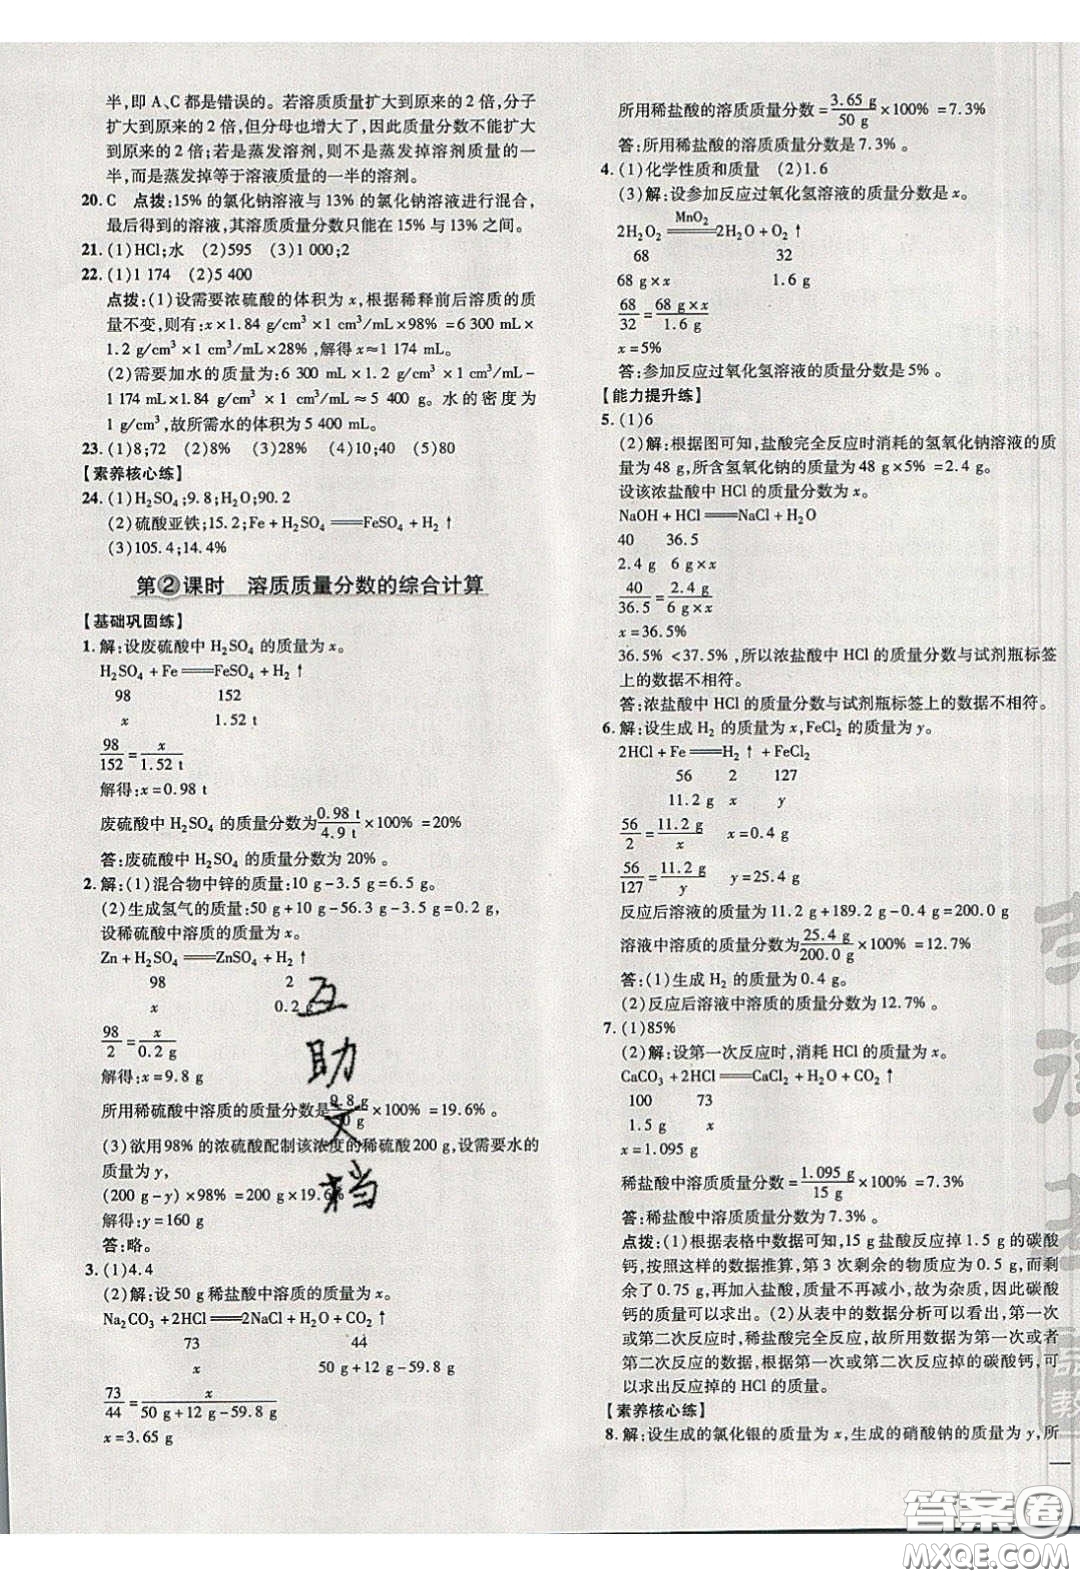 半,即 A、C 都是错误的。若溶质质量扩大到原来的 2 倍,分子
扩大到原来的 2 倍,但分母也增大了,因此质量分数不能扩大
到原来的 2 倍;若是蒸发溶剂,则不是蒸发掉溶剂质量的一
半,而是蒸发掉等于溶液质量的一半的溶剂。
20. C 点拨:15% 的氯化钠溶液与 13% 的氯化钠溶液进行混合,
最后得到的溶液,其溶质质量分数只能在 15% 与 13% 之间。
21. (1)HCl;水 (2)595 (3)1 000;2
22. (1)1 174 (2)5 400
点拨:(1)设需要浓硫酸的体积为 x,根据稀释前后溶质的质
量不变,则有:x×1.84 g/cm³×1 cm³/mL×98% =6 300 mL×
1.2 g/cm³×1 cm³/mL×28%,解得 x≈1 174 mL。
(2)需要加水的质量为:6 300 mL×1.2 g/cm³×1 cm³/mL-
1 174 mL×1.84 g/cm³×1 cm³/mL≈5 400 g。水的密度为
1 g/cm³,故所需水的体积为 5 400 mL。
23. (1)8;72 (2)8% (3)30% (4)10;40 (5)80
【素养核心练】
24. (1)H₂SO₄;9.8;H₂O;90.2
(2)硫酸亚铁;15.2;Fe+H₂SO₄══FeSO₄+H₂↑
(3)105.4;14.4%
第②课时 溶质质量分数的综合计算
【基础巩固练】
1. 解:设废硫酸中 H₂SO₄ 的质量为 x。
H₂SO₄+Fe══FeSO₄+H₂↑
98 152
x 1.52 t
98/152=x/1.52 t
解得:x=0.98 t
废硫酸中 H₂SO₄ 的质量分数为0.98 t/4.9 t×100% =20%
答:废硫酸中 H₂SO₄ 的质量分数为 20% 。
2. 解:(1)混合物中锌的质量:10 g-3.5 g=6.5 g。
(2)生成氢气的质量:50 g+10 g-56.3 g-3.5 g=0.2 g,
设稀硫酸中溶质的质量为 x。
Zn+H₂SO₄══ZnSO₄+H₂↑
98 2
x 0.2 g
98/2=x/0.2 g
解得:x=9.8 g
所用稀硫酸中溶质的质量分数是9.8 g/50 g×100% =19.6% 。
(3)欲用98% 的浓硫酸配制该浓度的稀硫酸200 g,设需要水的
质量为 y,
(200 g-y)×98% =200 g×19.6%
解得:y=160 g
答:略。
3. (1)4.4
(2)解:设 50 g稀盐酸中溶质的质量为 x。
Na₂CO₃+2HCl══2NaCl+H₂O+CO₂↑
73 44
x 50 g+12 g-59.8 g
73/44=x/50 g+12 g-59.8 g
x=3.65 g
所用稀盐酸的溶质质量分数=3.65 g/50 g×100% =7.3%
答:所用稀盐酸的溶质质量分数是 7.3% 。
4. (1)化学性质和质量 (2)1.6
(3)解:设参加反应过氧化氢溶液的质量分数是 x。
MnO₂
2H₂O₂══2H₂O+O₂↑
68 32
68 g×x 1.6 g
68/32=68 g×x/1.6 g
x=5%
答:参加反应过氧化氢溶液的质量分数是 5% 。
【能力提升练】
5. (1)6
(2)解:根据图可知,盐酸完全反应时消耗的氢氧化钠溶液的质
量为 48 g,所含氢氧化钠的质量为 48 g×5% =2.4 g。
设该浓盐酸中 HCl 的质量分数为 x。
NaOH+HCl══NaCl+H₂O
40 36.5
2.4 g 6 g×x
40/36.5=2.4 g/6 g×x
x=36.5%
36.5% <37.5% ,所以浓盐酸中 HCl 的质量分数与试剂瓶标签
上的数据不相符。
答:浓盐酸中 HCl 的质量分数与试剂瓶标签上的数据不相符。
6. 解:设生成 H₂ 的质量为 x,FeCl₂ 的质量为 y。
2HCl+Fe══H₂↑+FeCl₂
56 2 127
11.2 g x y
56/2=11.2 g/x x=0.4 g
56/127=11.2 g/y y=25.4 g
反应后溶液的质量为 11.2 g+189.2 g-0.4 g=200.0 g
溶液中溶质的质量分数为25.4 g/200.0 g×100% =12.7%
答:(1)生成 H₂ 的质量为 0.4 g。
(2)反应后溶液中溶质的质量分数为 12.7% 。
7. (1)85%
(2)解:设第一次反应时,消耗 HCl 的质量为 x。
CaCO₃+2HCl══CaCl₂+H₂O+CO₂↑
100 73
1.5 g x
x=1.095 g
稀盐酸中溶质质量分数=1.095 g/15 g×100% =7.3%
答:稀盐酸中溶质质量分数为 7.3% 。
点拨:(1)根据表格中数据可知,15 g盐酸反应掉 1.5 g 的碳酸
钙,按照这样的数据推算,第 3 次剩余的物质应为 0.5 g,而实际
剩了 0.75 g,再加入盐酸,质量不再减小,故为杂质,因此碳酸
钙的质量可以求出。(2)从表中的数据分析可以看出,第一次
或第二次反应时,稀盐酸完全反应,故所用数据为第一次或者
第二次反应的数据,根据第一次或第二次反应掉的碳酸钙,可
以求出反应掉的 HCl 的质量。
【素养核心练】
8. 解:设生成的氯化银的质量为 x,生成的硝酸钠的质量为 y,所
互
助
文
档
答案卷
MXQE.COM